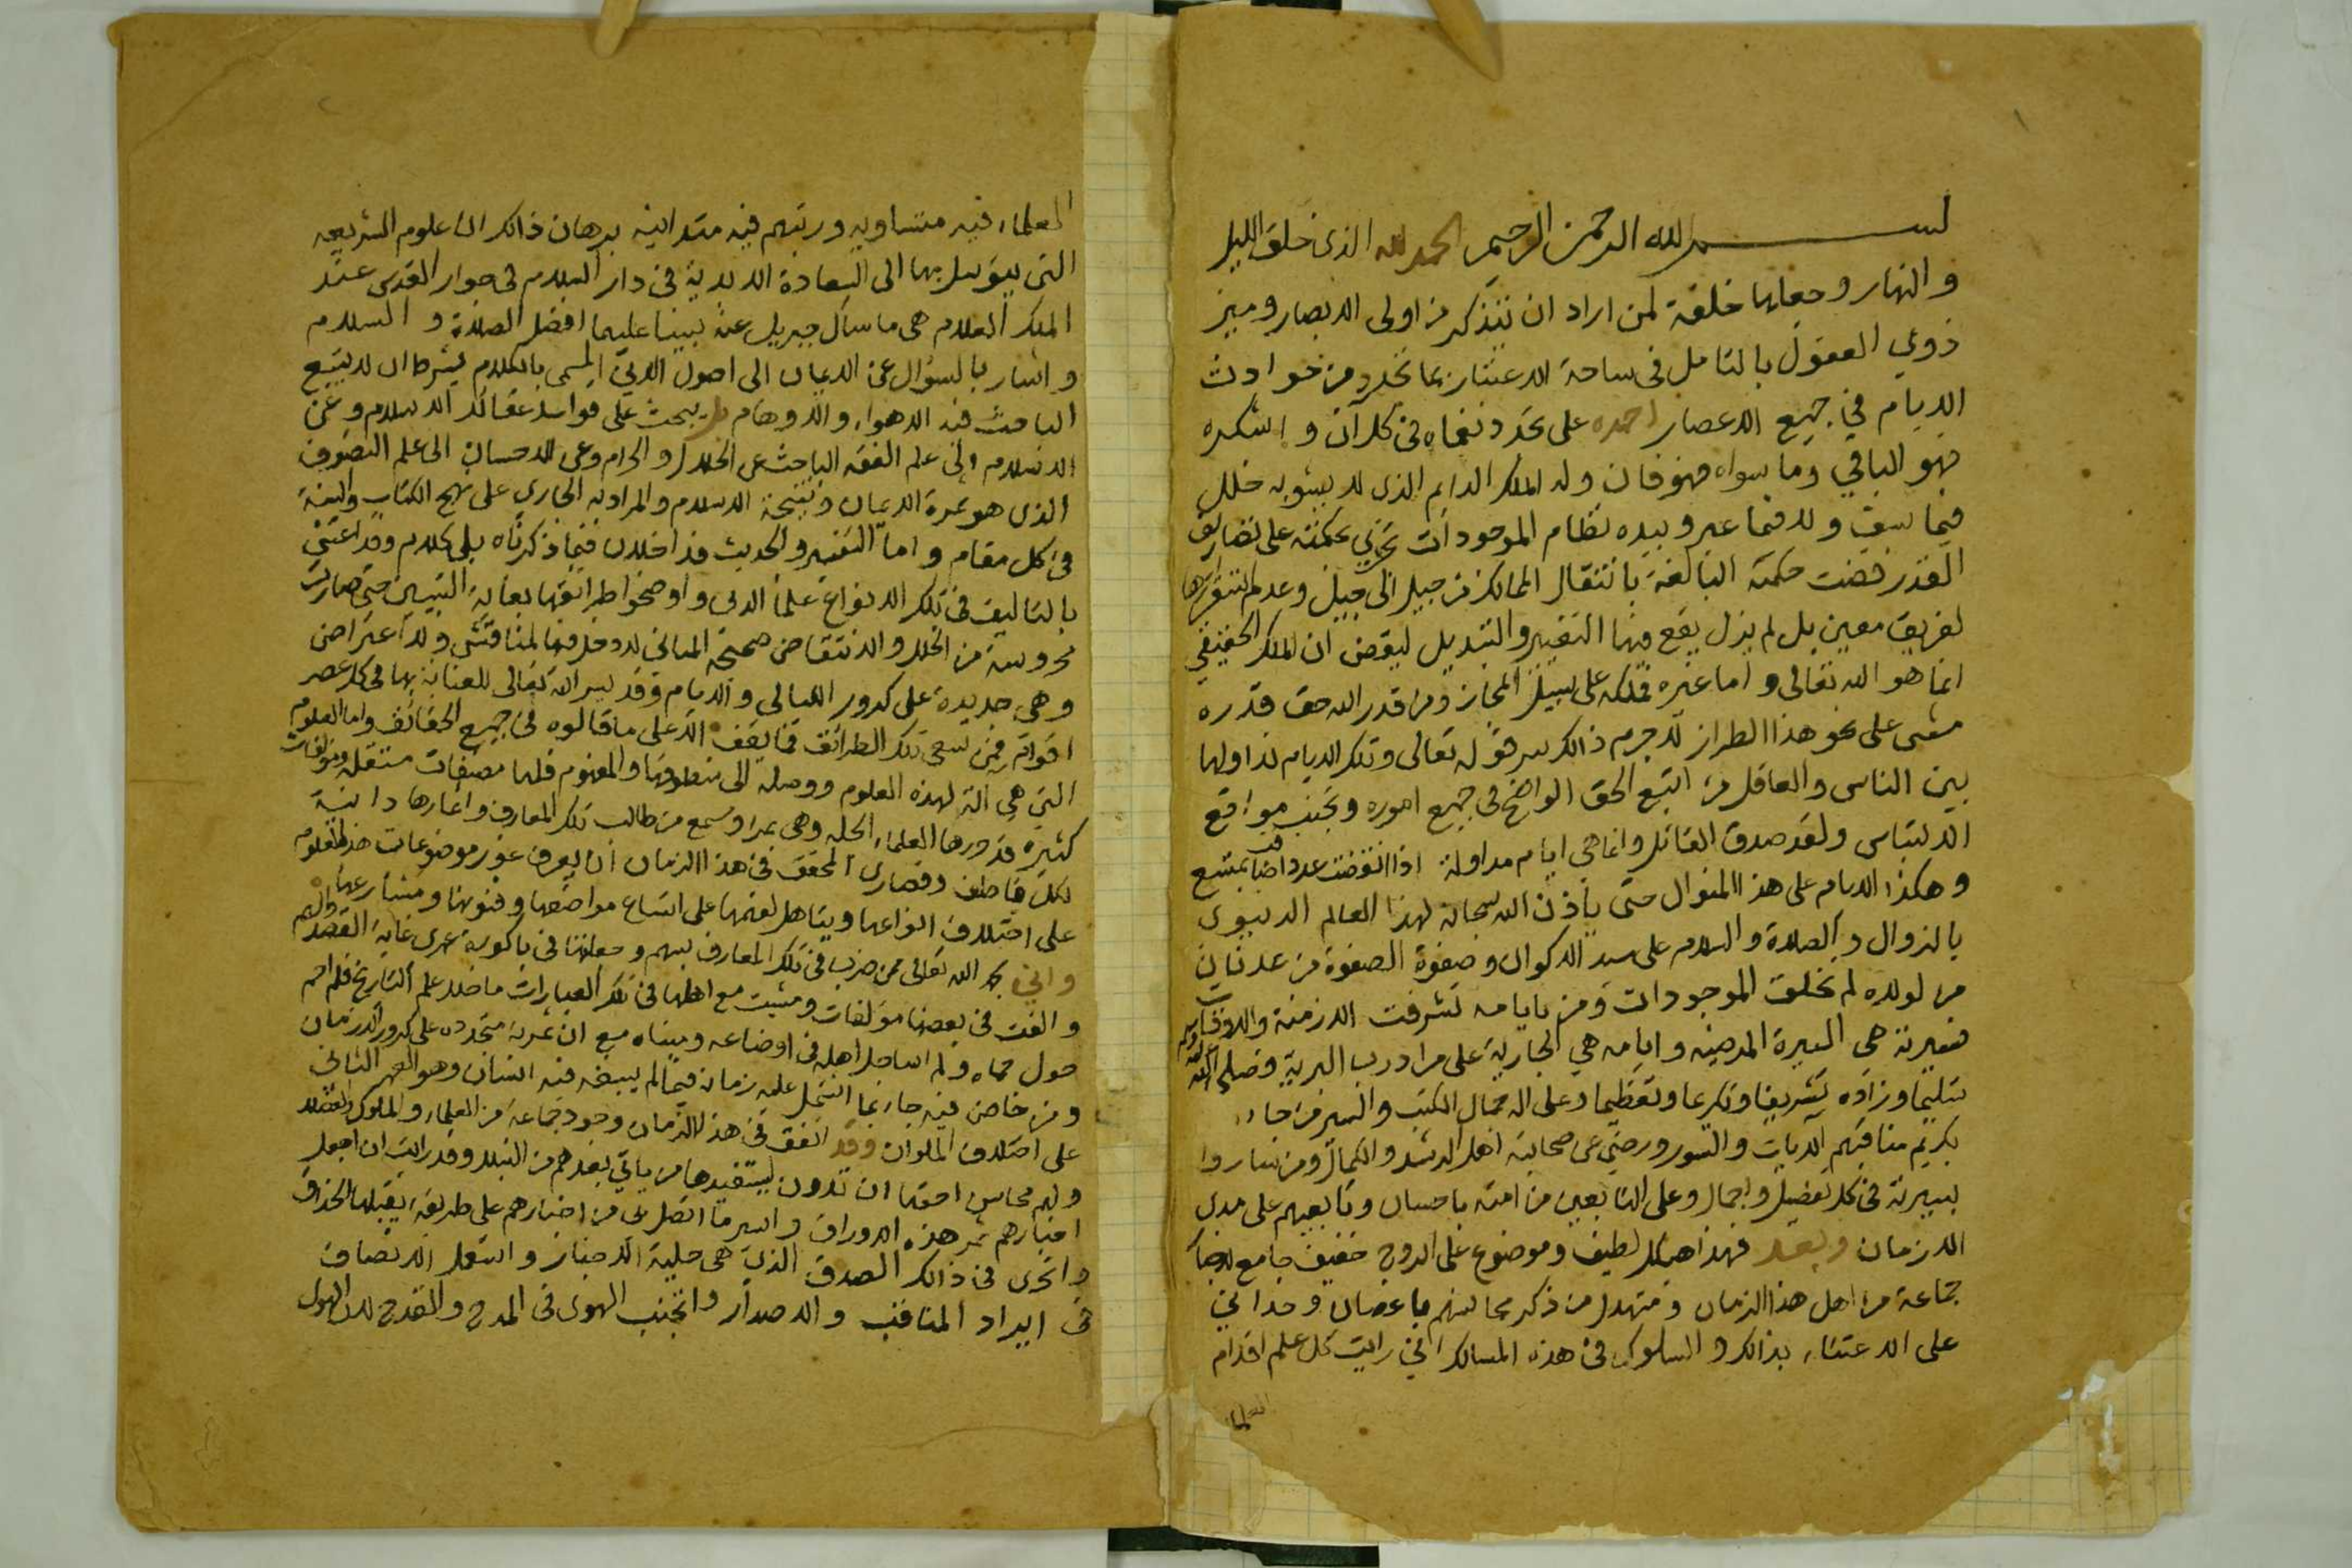 بسم الله الرحمن الرحيم الحمد لله الذي خلق الليل
والنهار وجعلها خلفة لمن اراد ان يتذكر من اولى الابصار وميز
ذوي العقول بالتامل فى ساحة الاعتبار بما تجدد من حوادث
الايام في جميع الاعصار احمده على تجدد نعماه فى كل آن واشكره
فهو الباقي وما سواه فهو فان وله الملك الدايم الذى لا يشوبه خلل
فيما سبق ولا فيما غبر وبيده نظام الموجودات تجري بحكمته على تصاريف
القدر قضت حكمته البالغة بانتقال الممالك من جيل الى جيل وعدم استقرارها
لفريق معين بل لم يزل يقع فيها التغيير والتبديل ليقضى ان الملك الحقيقي
انما هو الله تعالى واما غيره فملكه على سبيل المجاز ومن قدر الله حق قدره
مشى على نحو هذا الطراز لا جرم ذالك سر قوله تعالى وتلك الايام نداولها
بين الناس والعاقل من اتبع الحق الواضح فى جميع اموره وتجنب مواقع
الالتباس ولقد صدق القائل وانما هي ايام مداولة اذا انقضت عدد
وهكذا الايام على هذا المنوال حتى ياذن الله سبحانه لهذا العالم الدنيوى
بالزوال والصلاة والسلام على سيد الاكوان وصفوة الصفوة من عدنان
من لولاه لم تخلق الموجودات ومن بايامه تشرفت الازمنة والاوقات
فسيرته هى السيرة المرضية وايامه هي الجارية على مراد رب البرية وصلى الله عليه وسلم
تسليما وزاده تشريفا وتكريما وتعظيما وعلى اله جمال الكتب والسير من جاء
بكريم مناقبهم الآيات والسور ورضي عن صحابته اهل الرشد والكمال ومن ساروا
بسيرته فى كل تفصيل واجمال وعلى التابعين من امته باحسان وتابعيهم على مدى
الازمان وبعد فهذا هيكل لطيف وموضوع على الروح خفيف جامع لاخبار
جماعة من اهل هذا الزمان ومتهدل من ذكر محاسنهم باغصان وحداني
على الاعتناء بذالك والسلوك فى هذه المسالك اني رايت كل علم اقدام
العلماء
العلماء فيه متساويه ورتبهم فيه متدانيه برهان ذالك ان علوم الشريعه
التي يتوسل بها الى السعادة الابدية فى دار السلام فى جوار القدس عند
الملك العلام هى ما سأل جبريل عنه نبينا عليهما افضل الصلاة والسلام
واشار بالسؤال عن الايمان الى اصول الدين المسمى بالكلام بشرط ان لا يتبع
الباحث فيه الاهواء والاوهام بل يبحث على قواسد عقائد الاسلام وعن
الاسلام الى علم الفقه الباحث عن الحلال والحرام وعن الاحسان الى علم التصوف
الذى هو ثمرة الايمان ونتيجة الاسلام والمراد به الجاري على نهج الكتاب والسنة
فى كل مقام واما التفسير والحديث فداخلان فيما ذكرناه بلى كلام وقد اعتنى
بالتاليف فى تلك الانواع علماء الدين واوضحوا طرائقها بغاية التبيين حتى صارت
محروسة من الخلل والانتقاص صحيحة المبانى لا دخل فيها لمناقشى ولا اعتراض
وهى جديدة على كرور الليالى والايام وقد يسر الله تعالى للعناية بها فى كل عصر
اقوام فمن سعى تلك الطرائق فما يقف الا على ما قالوه فى جميع الحقائق واما العلوم
التي هى آلة لهذه العلوم ووصله الى منطوقها والمفهوم فلها مصنفات مستقله ومؤلفات
كثيره قد ورها العلماء الجله وهى بمرا ومسمع من طالب تلك المعارف واثمارها دانية
لكل قاطف وقصارى المحقق فى هذا الزمان ان يعرف غور موضوعات هذه العلوم
على اختلاف انواعها ويتاهل لفهمها على اتساع مواضعها وفنونها ومشارعها
واني بحمد الله تعالى ممن ضرب فى تلك المعارف بسهم وجعلتها فى باكورة عمرى غاية القصد
والفت فى بعضها مؤلفات ومشيت مع اهلها فى تلك العبارات ما خلا علم التاريخ فلم احم
حول حماه ولم اساجل اهله فى اوضاعه ومبناه مع ان ثمرته متجدده على كرور الازمان
ومن خاض فيه جاء بما اشتمل عليه زمانه فيما لم يسبقه فيه انسان وهو السهم الثانى
على اختلاف الملوان وقد اتفق فى هذا الزمان وجود جماعة من العلماء والملوك والفضلاء
ولهم محاسن احقها ان تدون ليستفيدها من ياتي بعدهم من النبلاء وقد رايت ان اجعل
اخبارهم ثمر هذه الاوراق واسير ما اتصل بى من اخبارهم على طريقة يقبلها الحذاق
واتحرى فى ذالك الصدق الذى هى حلية الاخبار واستعمل الانصاف
فى ايراد المناقب والاصدار واتجنب الهوى فى المدح والقدح لان الهوى